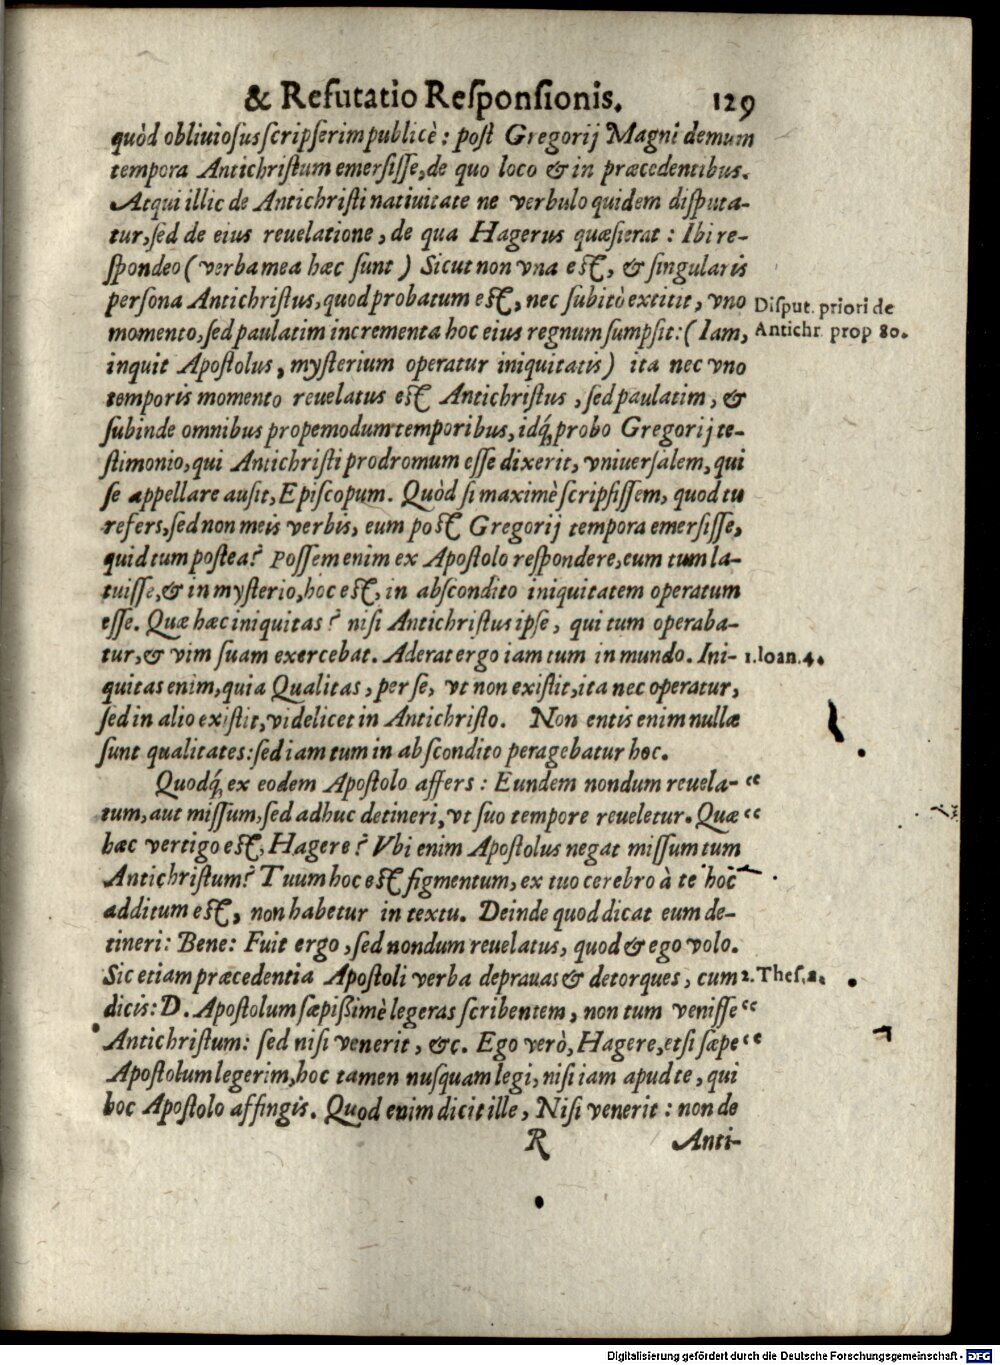 & Refutatio Responsionis. 129
quòd obliuiosus scripserim publicè : post Gregorij Magni demum
tempora Antichristum emersisse, de quo loco & in præcedentibus.
Atqui illic de Antichristi natiuitate ne verbulo quidem disputa-
tur, sed de eius reuelatione, de qua Hagerus quæsierat : Ibi re-
spondeo ( verba mea hæc sunt ) Sicut non vna est, & singularis
persona Antichristus, quod probatum est, nec subitò extitit, vno
Disput. priori de
momento, sed paulatim incrementa hoc eius regnum sumpsit: ( Iam,
Antichr. prop 80.
inquit Apostolus, mysterium operatur iniquitatis ) ita nec vno
temporis momento reuelatus est Antichristus, sed paulatim, &
subinde omnibus propemodum temporibus, idq́; probo Gregorij te-
stimonio, qui Antichristi prodromum esse dixerit, vniuersalem, qui
se appellare ausit, Episcopum. Quòd si maximè scripsissem, quod tu
refers, sed non meis verbis, eum post Gregorij tempora emersisse,
quid tum postea? Possem enim ex Apostolo respondere, eum tum la-
tuisse, & in mysterio, hoc est, in abscondito iniquitatem operatum
esse. Quæ hæc iniquitas? nisi Antichristus ipse, qui tum operaba-
tur, & vim suam exercebat. Aderat ergo iam tum in mundo. Ini-
1. Ioan. 4.
quitas enim, quia Qualitas, per se, vt non existit, ita nec operatur,
sed in alio existit, videlicet in Antichristo. Non entis enim nullæ
sunt qualitates: sed iam tum in abscondito peragebatur hoc.
Quodq́; ex eodem Apostolo affers : Eundem nondum reuela- “
tum, aut missum, sed adhuc detineri, vt suo tempore reueletur. Quæ “
hæc vertigo est, Hagere? Vbi enim Apostolus negat missum tum
Antichristum? Tuum hoc est figmentum, ex tuo cerebro à te hoc
additum est, non habetur in textu. Deinde quod dicat eum de-
tineri: Bene: Fuit ergo, sed nondum reuelatus, quod & ego volo.
Sic etiam præcedentia Apostoli verba deprauas & detorques, cum
2. Thes. 2.
dicis: D. Apostolum sæpißimè legeras scribentem, non tum venisse “
Antichristum: sed nisi venerit, &c. Ego verò, Hagere, etsi sæpe “
Apostolum legerim, hoc tamen nusquam legi, nisi iam apud te, qui
hoc Apostolo affingis. Quod enim dicit ille, Nisi venerit : non de
R Anti-
Digitalisierung gefördert durch die Deutsche Forschungsgemeinschaft - DFG